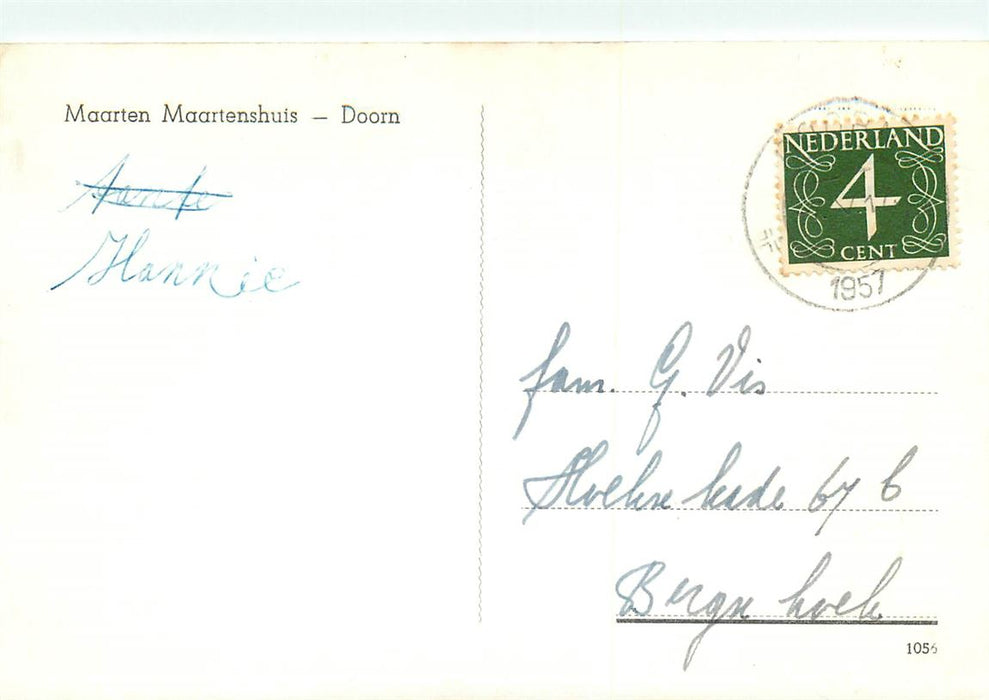 Maarten Maartenshuis — Doorn
Hannie
NEDERLAND
4
CENT
1957
fam. G. Vis
Hoekse kade 67 b
Bergse hoek
1056